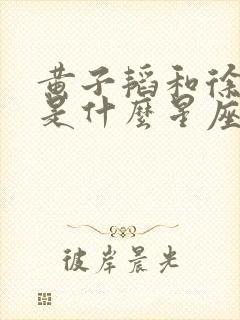 黄子韬和徐
是什麽星座
彼岸晨光